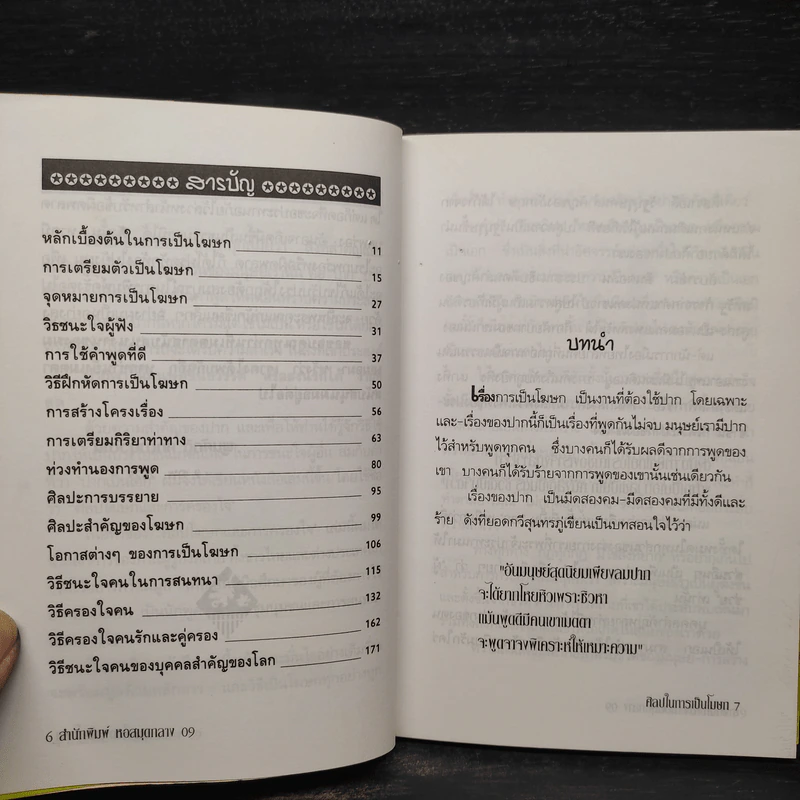 สารบัญ
หลักเบื้องต้นในการเป็นโฆษก 11
การเตรียมตัวเป็นโฆษก 15
จุดหมายการเป็นโฆษก 27
วิธีชนะใจผู้ฟัง 31
การใช้คำพูดที่ดี 37
วิธีฝึกหัดการเป็นโฆษก 50
การสร้างโครงเรื่อง 56
การเตรียมกิริยาท่าทาง 63
ท่วงทำนองการพูด 80
ศิลปะการบรรยาย 95
ศิลปะสำคัญของโฆษก 99
โอกาสต่างๆ ของการเป็นโฆษก 106
วิธีชนะใจคนในการสนทนา 115
วิธีครองใจคน 132
วิธีครองใจคนรักและคู่ครอง 162
วิธีชนะใจคนของบุคคลสำคัญของโลก 171
6 สำนักพิมพ์ หอสมุดกลาง 09
บทนำ
เรื่องการเป็นโฆษก เป็นงานที่ต้องใช้ปาก โดยเฉพาะ
และ-เรื่องของปากนี้ก็เป็นเรื่องที่พูดกันไม่จบ มนุษย์เรามีปาก
ไว้สำหรับพูดทุกคน ซึ่งบางคนก็ได้รับผลดีจากการพูดของ
เขา บางคนก็ได้รับร้ายจากการพูดของเขานั้นเช่นเดียวกัน
เรื่องของปาก เป็นมีดสองคม-มีดสองคมที่มีทั้งดีและ
ร้าย ดังที่ยอดกวีสุนทรภู่เขียนเป็นบทสอนใจไว้ว่า
"อันมนุษย์สุดนิยมเพียงลมปาก
จะได้ยากโหยหิวเพราะชิวหา
แม้นพูดดีมีคนเขาเมตตา
จะพูดจาจงพิเคราะห์ให้เหมาะความ"
ศิลปในการเป็นโฆษก 7